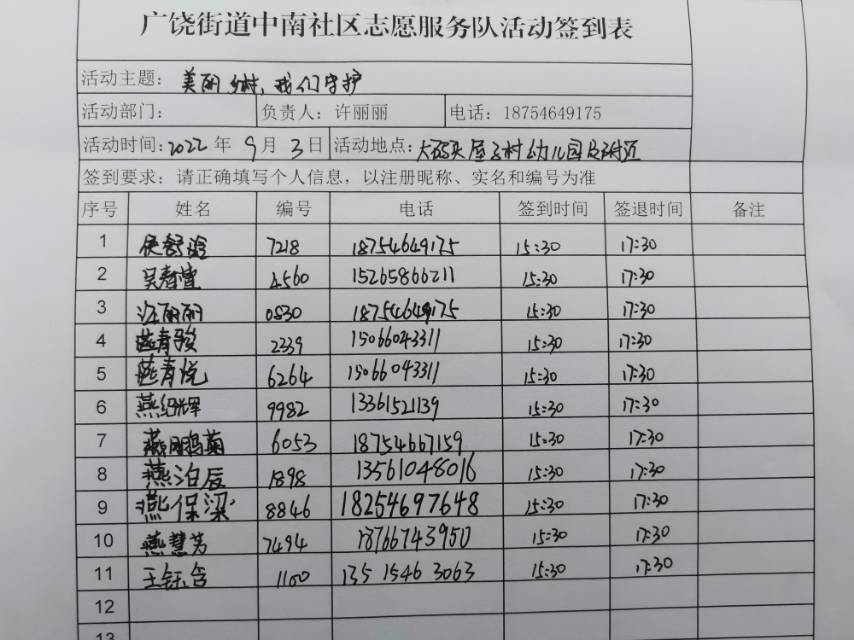 广饶街道中南社区志愿服务队活动签到表
活动主题: 美丽乡村,我们守护
活动部门: 负责人: 许丽丽 电话: 18754649175
活动时间: 2022 年 9 月 3 日 活动地点: 大码头屋子村幼儿园及附近
签到要求: 请正确填写个人信息,以注册昵称、实名和编号为准
序号 姓名 编号 电话 签到时间 签退时间 备注
1 侯舒涵 7218 18754649175 15:30 17:30
2 吴春萱 4560 15265866211 15:30 17:30
3 许丽丽 0830 18754649175 15:30 17:30
4 燕青骏 2339 15066043311 15:30 17:30
5 燕青悦 6264 15066043311 15:30 17:30
6 燕绍辉 9982 13361521139 15:30 17:30
7 燕鹏菊 6053 18754667159 15:30 17:30
8 燕泊辰 1898 13561048016 15:30 17:30
9 燕保深 8846 18254697648 15:30 17:30
10 燕慧芳 7494 18766743950 15:30 17:30
11 王钰含 1100 135 1546 3063 15:30 17:30
12
13